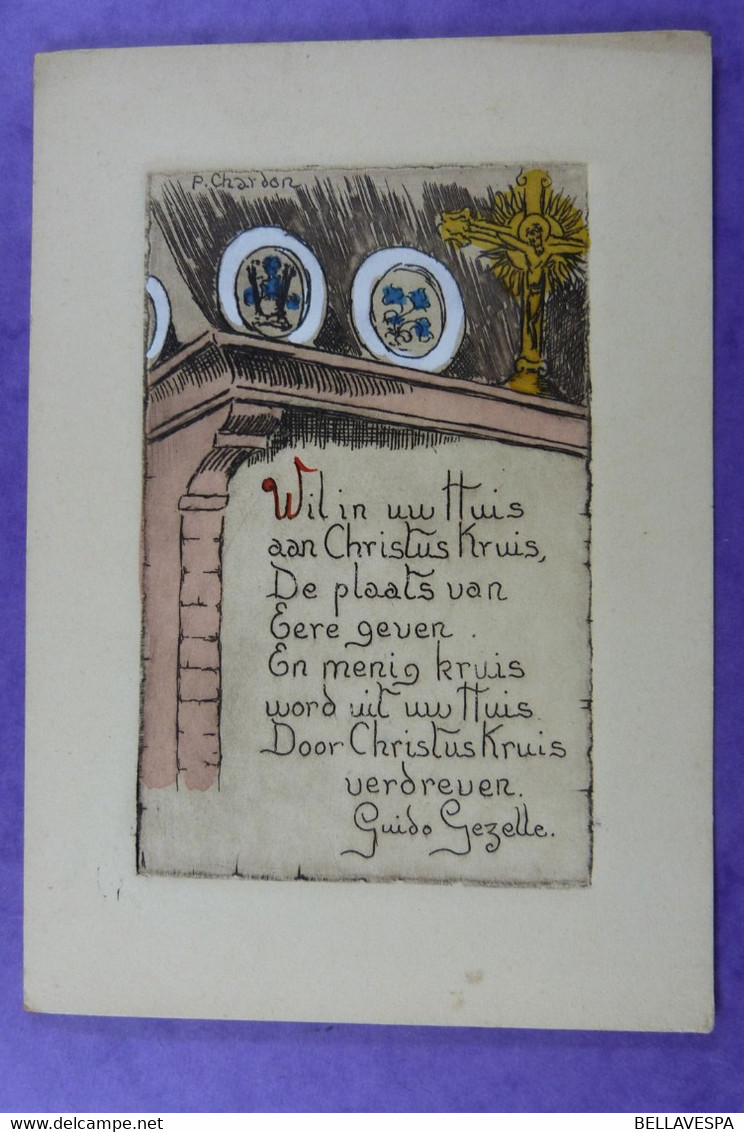 P. Chardon
Wil in uw Huis
aan Christus Kruis,
De plaats van
Eere geven.
En menig kruis
word uit uw Huis
Door Christus Kruis
verdreven.
Guido Gezelle.
BELLAVESPA